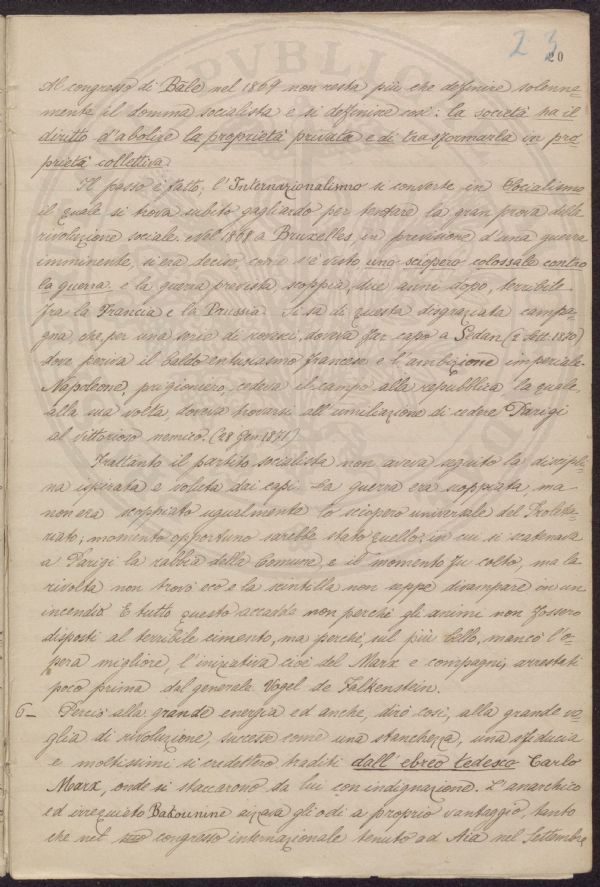 23
20
Al congresso di Bâle nel 1869 non resta più che definire solenne-
mente il domma socialista e si definisce così: la società ha il
diritto d'abolire la proprietà privata e di trasformarla in pro-
prietà collettiva.
Il passo è fatto; l'Internazionalismo si converte in Socialismo
il quale si trova subito gagliardo per tentare la gran prova della
rivoluzione sociale. Nel 1868 a Bruxelles, in previsione d'una guerra
imminente, si era deciso, come s'è visto uno sciopero colossale contro
la guerra, e la guerra prevista scoppia, due anni dopo, terribile
fra la Francia e la Prussia. Si sa di questa disgraziata campa-
gna che, per una serie di rovesci, doveva far capo a Sedan (2 Sett. 1870)
dove periva il baldo entusiasmo francese e l'ambizione imperiale.
Napoleone, prigioniero, cedeva il campo alla repubblica, la quale,
alla sua volta, doveva trovarsi all'umiliazione di cedere Parigi
al vittorioso nemico. (28 Gen. 1871)
Frattanto il partito socialista non aveva seguito la discipli-
na ispirata e voluta dai capi. La guerra era scoppiata, ma
non era scoppiato ugualmente lo sciopero universale del Proleta-
riato; momento opportuno sarebbe stato quello in cui si scatenava
a Parigi la rabbia della Comune, e il momento fu colto, ma la
rivolta non trovò eco e la scintilla non seppe divampare in un
incendio. E tutto questo accadde non perchè gli animi non fossero
disposti al terribile cimento, ma perchè, sul più bello, mancò l'o-
pera migliore, l'iniziativa cioè del Marx e compagni, arrestati
poco prima dal generale Vogel de Falkenstein.
6— Perciò alla grande energia ed anche, dirò così, alla grande vo-
glia di rivoluzione, successe come una stanchezza, una sfiducia
e moltissimi si credettero traditi dall'ebreo tedesco Carlo
Marx, onde si staccarono da lui con indignazione. L'anarchico
ed irrequieto Bakounine aizzava gli odi a proprio vantaggio, tanto
che nel congresso internazionale tenuto ad Aia nel Settembre